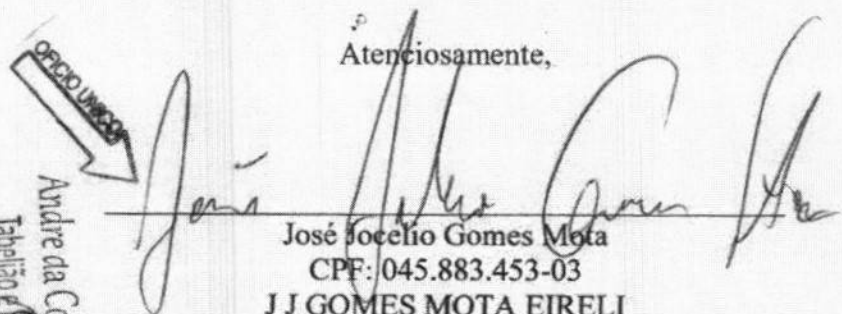 Atenciosamente,
OFICIO UNICO
José Jocelio Gomes Mota
CPF: 045.883.453-03
J J GOMES MOTA EIRELI
Andre da Co
Tabelião e